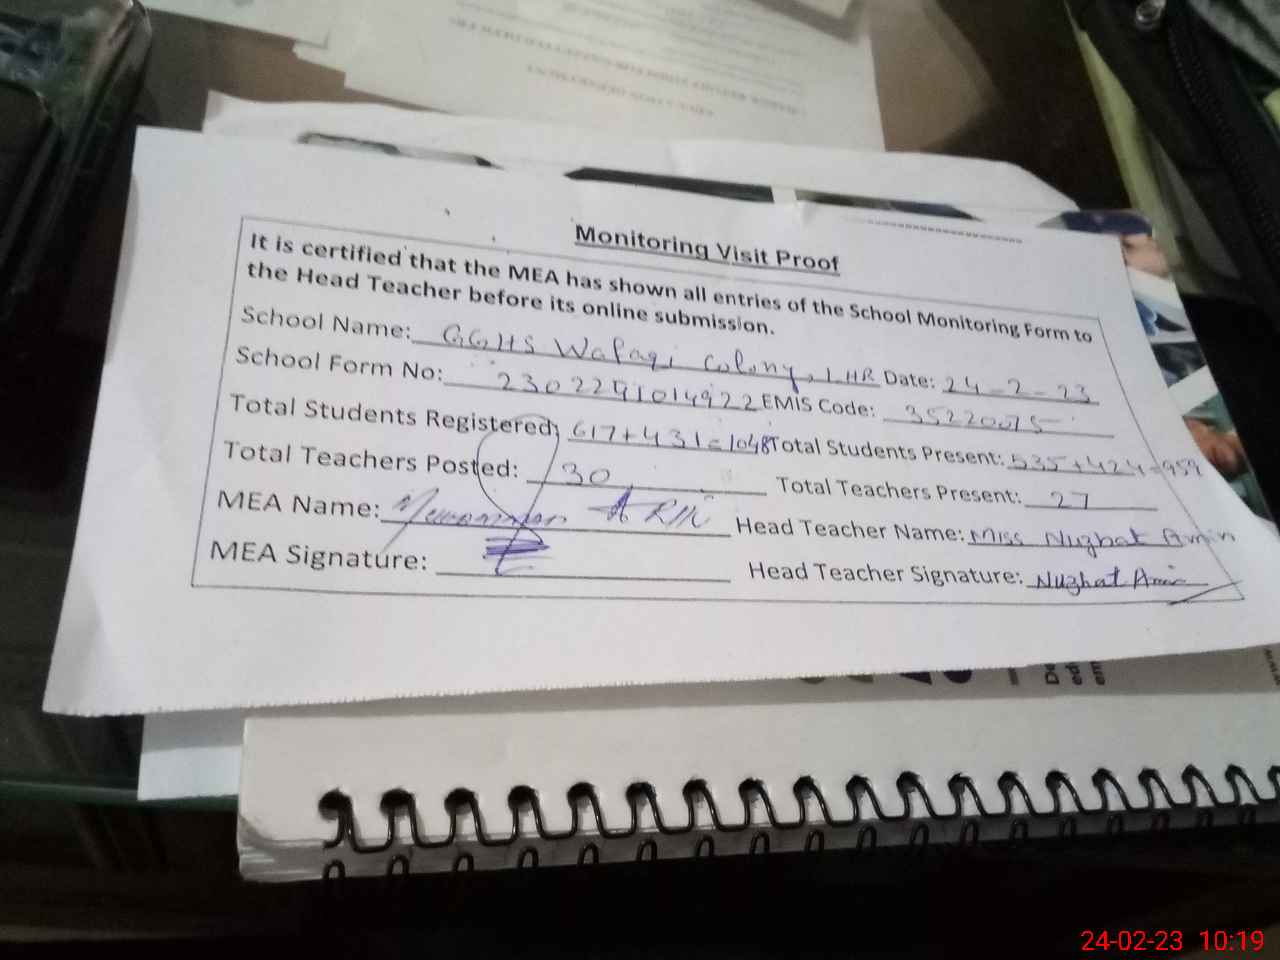 Monitoring Visit Proof
It is certified that the MEA has shown all entries of the School Monitoring Form to
the Head Teacher before its online submission.
School Name: GGHS Wafaqi Colony, LHR Date: 24-2-23
School Form No: 2302291014922 EMIS Code: 35220075
Total Students Registered: 617+431=1048 Total Students Present: 535+424=959
Total Teachers Posted: 30 Total Teachers Present: 27
MEA Name: Head Teacher Name: Miss Nuzhat Amin
MEA Signature: Head Teacher Signature: Nuzhat Amin
24-02-23 10:19